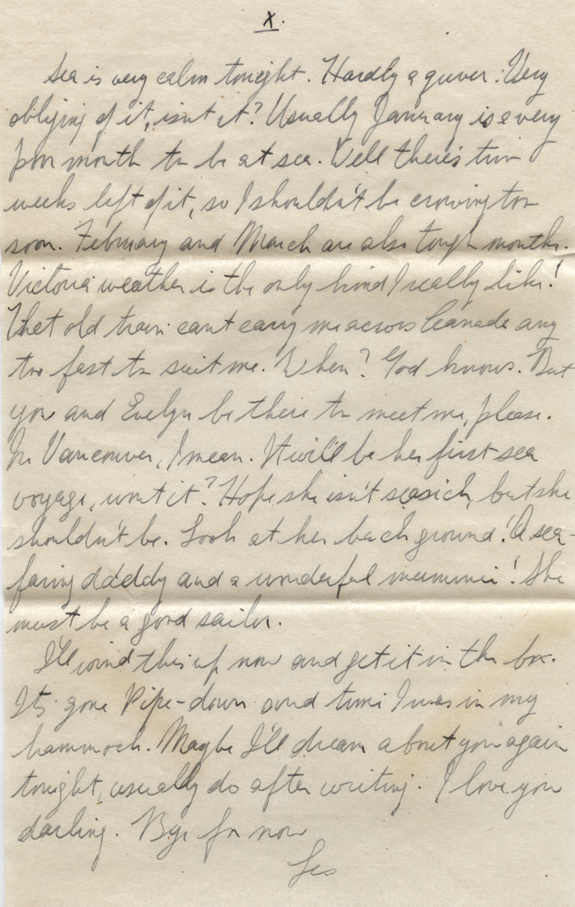 X.
Sea is very calm tonight. Hardly a quiver. Very
obliging of it, isnt it? Usually January is a very
poor month to be at sea. Well there's two
weeks left of it, so I shouldn't be crowing too
soon. February and March are also tough months.
Victoria weather is the only kind I really like!
That old train cant carry me across Canada any
too fast to suit me. When? God knows. But
you and Evelyn be there to meet me, please.
In Vancouver, I mean. It will be her first sea
voyage, wont it? Hope she isn't seasick, but she
shouldn't be. Look at her background! A sea-
faring daddy and a wonderful mummie! She
must be a good sailor.
I'll wind this up now and get it in the box.
Its gone Pipe-down and time I was in my
hammock. Maybe I'll dream about you again
tonight, usually do after writing. I love you
darling. Bye for now
Les